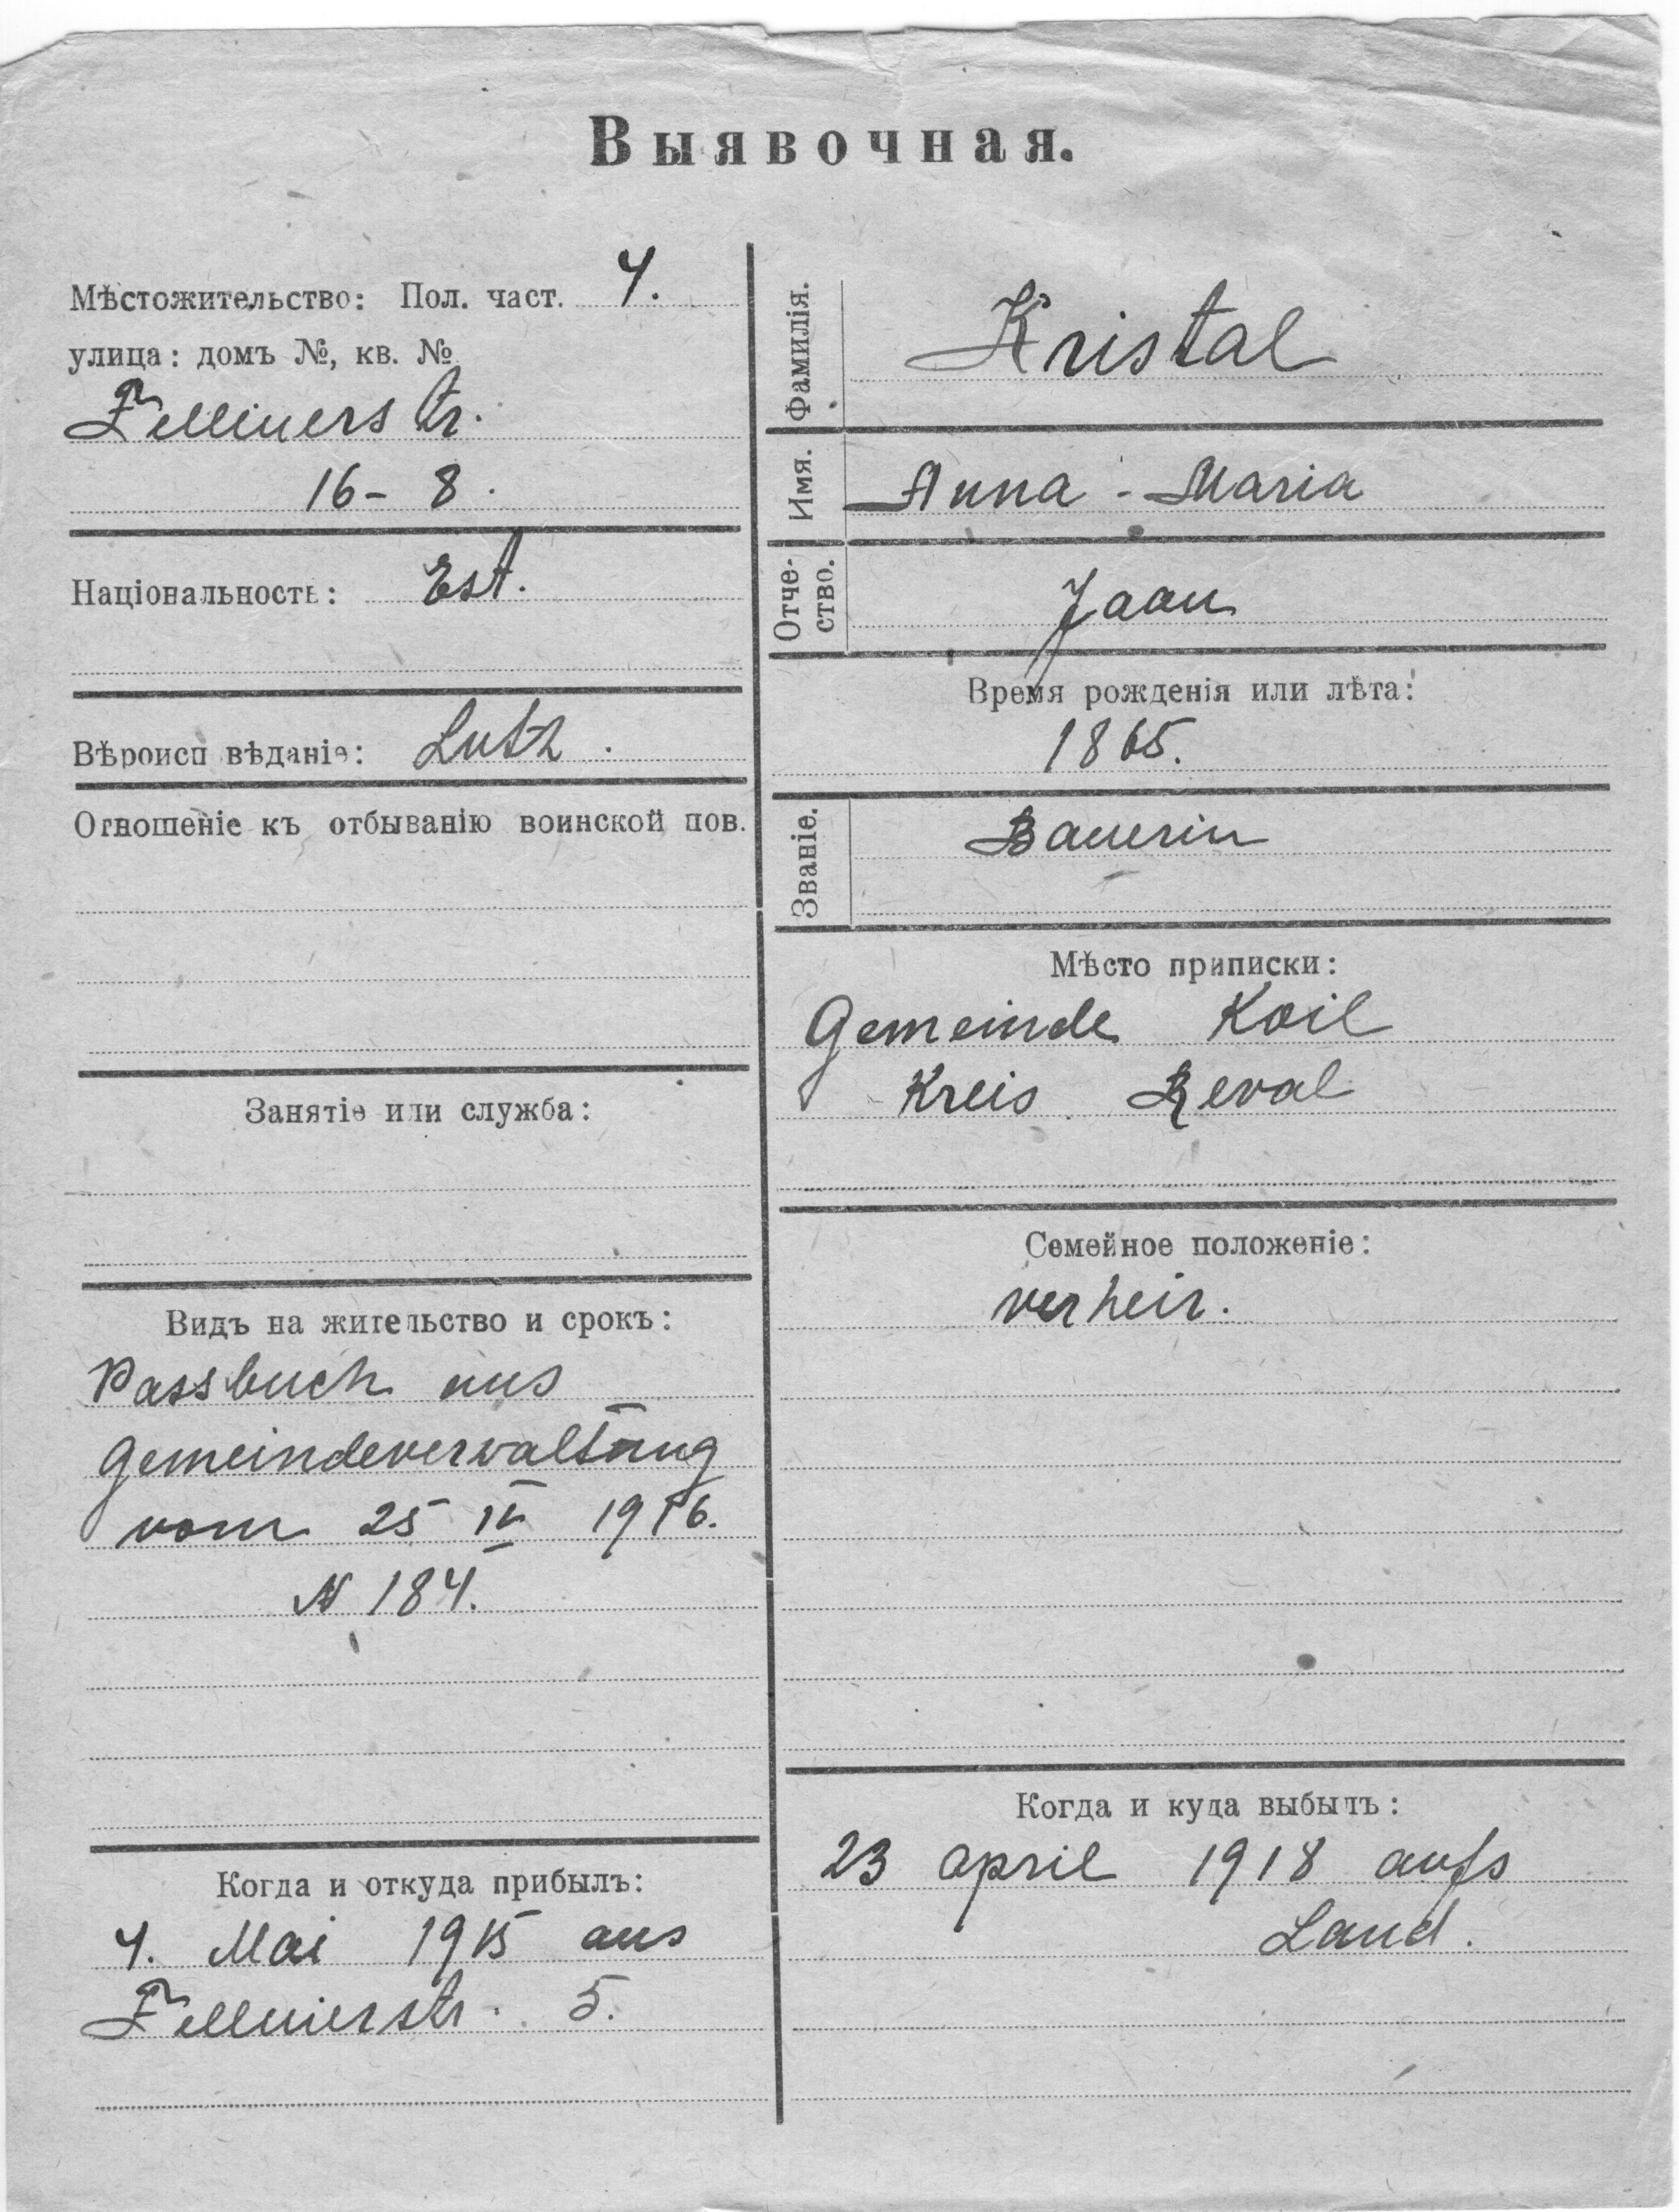 Выявочная.
Мѣстожительство: Пол. част. 4.
улица: домъ №, кв. №
Felliners tr.
16 - 8.
Національность: Est.
Вѣроисп вѣданіе: Luth.
Отношеніе къ отбыванію воинской пов.
Занятіе или служба:
Видъ на жительство и срокъ:
Passbuch aus
Gemeindeverwaltung
vom 25 IV 1916.
N 184.
Когда и откуда прибылъ:
4. Mai 1915 aus
Fellinerstr. 5.
Фамилія. Kristal
Имя. Anna - Maria
Отче-
ство. Jaan
Время рожденія или лѣта:
1865.
Званіе. Bauerin
Мѣсто приписки:
Gemeinde Koil
Kreis Reval
Семейное положеніе:
verheir.
Когда и куда выбылъ:
23 april 1918 aufs
Land.